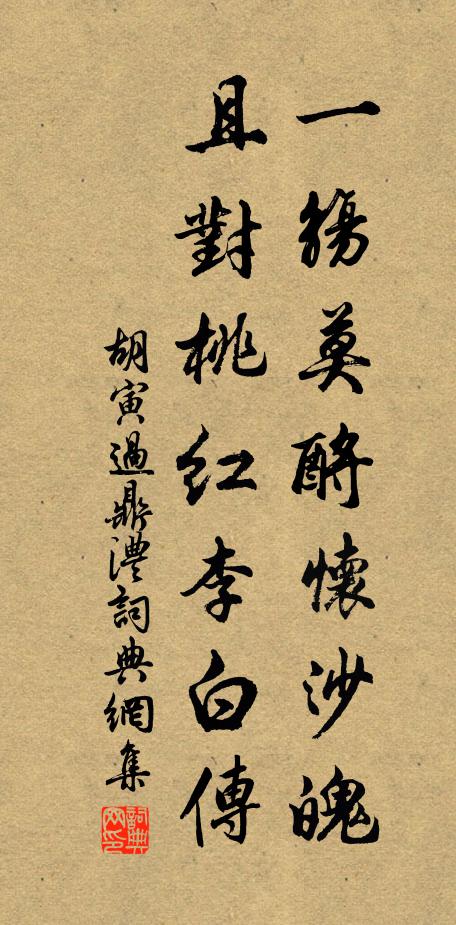 一觴莫酹懷沙魄
且對桃紅李白傳
胡寅過鼎澧詞典網集
詞典網印